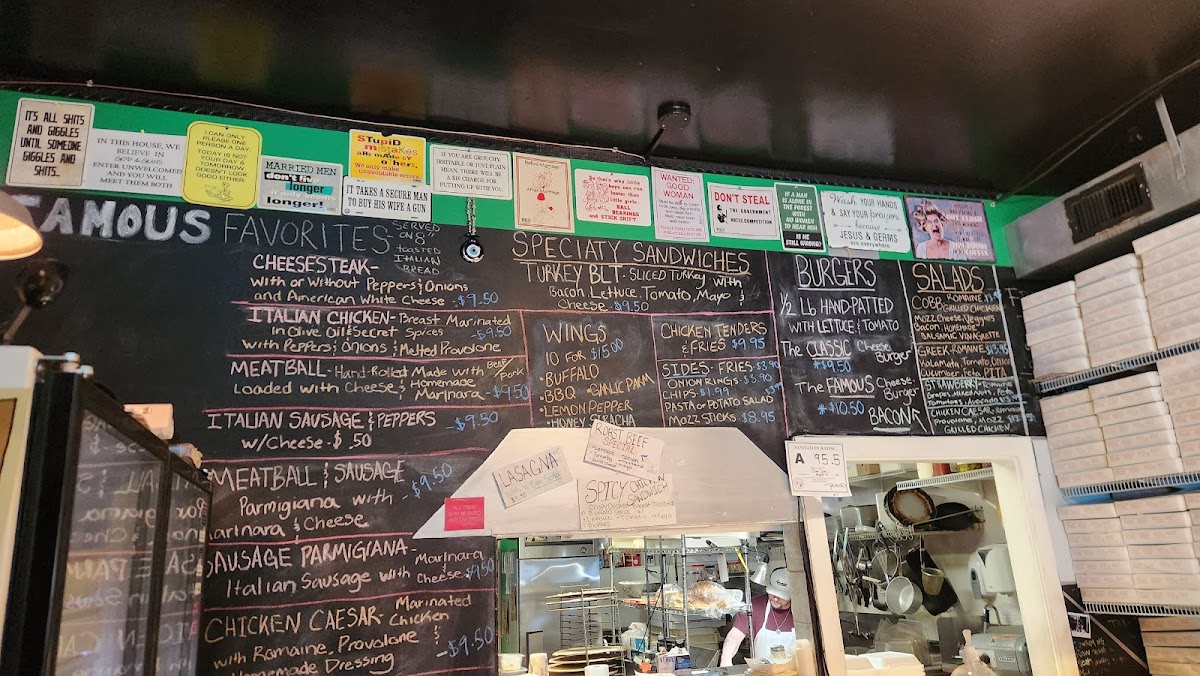 IT'S ALL SHITS
AND GIGGLES
UNTIL SOMEONE
GIGGLES AND
SHITS..
IN THIS HOUSE, WE
BELIEVE IN
GOD & GUNS
ENTER UNWELCOMED
AND YOU WILL
MEET THEM BOTH
I CAN ONLY
PLEASE ONE
PERSON A DAY
TODAY IS NOT
YOUR DAY &
TOMORROW
DOESN'T LOOK
GOOD EITHER.
MARRIED MEN
don't live
longer
longer!
STupiD
mistakes
are made by
others.
We only make
unavoidable errors.
IT TAKES A SECURE MAN
TO BUY HIS WIFE A GUN
IF YOU ARE GROUCHY
IRRITABLE OR JUST PLAIN
MEAN, THERE WILL BE
A $10 CHARGE FOR
PUTTING UP WITH YOU
So that's why little
boys can run
faster than
little girls
BALL
BEARINGS
and
STICK SHIFT
WANTED:
GOOD
WOMAN
DON'T STEAL
THE GOVERNMENT
HATES COMPETITION
IF A MAN
IS ALONE
IN THE FOREST
WITH NO WOMAN
TO HEAR HIM
IS HE
STILL WRONG?
Wash YOUR HANDS
& SAY YOUR prayers
because
JESUS & GERMS
are everywhere
FAMOUS FAVORITES-
SERVED
ONLY
TOASTED
ITALIAN
BREAD
CHEESESTEAK-
with or Without Peppers & Onions
and American White Cheese - $9.50
ITALIAN CHICKEN - Breast Marinated
in Olive Oil & Secret Spices -$9.50
with Peppers & Onions & Melted Provolone
MEATBALL - Hand-Rolled Made with Beef/Pork
Loaded with Cheese & Homemade
Marinara - $9.50
ITALIAN SAUSAGE & PEPPERS -$9.50
w/Cheese - $ .50
MEATBALL & SAUSAGE
Parmigiana with -$9.50
Marinara & Cheese
SAUSAGE PARMIGIANA-
Italian Sausage with Marinara & Cheese -$9.50
CHICKEN CAESAR - Marinated Chicken
with Romaine, Provolone & -$9.50
Homemade Dressing
SPECIATY SANDWICHES
TURKEY BLT - SLICED Turkey with
Bacon, Lettuce, Tomato, Mayo &
Cheese - $9.50
WINGS
10 FOR $15.00
• BUFFALO
• BBQ • GARLIC PARM
• LEMON PEPPER
• HONEY SIRACHA
CHICKEN TENDERS
& FRIES $9.95
SIDES - FRIES $3.90
ONION RINGS - $3.90
CHIPS - $1.99
PASTA or POTATO SALAD
MOZZ STICKS $8.95
BURGERS
1/2 LB HAND-PATTED
WITH LETTUCE & TOMATO
The CLASSIC Cheese Burger
$9.50
The FAMOUS Cheese-Burger
$10.50
BACON
SALADS
COBB - ROMAINE,
GRILLED CHICKEN
Mozz Cheese, Veggies
Bacon, Homemade
BALSAMIC VINAIGRETTE
GREEK - ROMAINE
Kalamata, Tomato, Onion
Cucumber, Feta, PITA
STRAWBERRY - Romaine
Grapes, Mixed Nuts, Feta
Tomatoes, Avocado
CHICKEN CAESAR, Romaine
PROVOLONE,
GRILLED CHICKEN
LASAGNA
ROAST BEEF
SPECIAL
SPICY CHICKEN
SANDWICH
SANITATION RATING
A 95.5